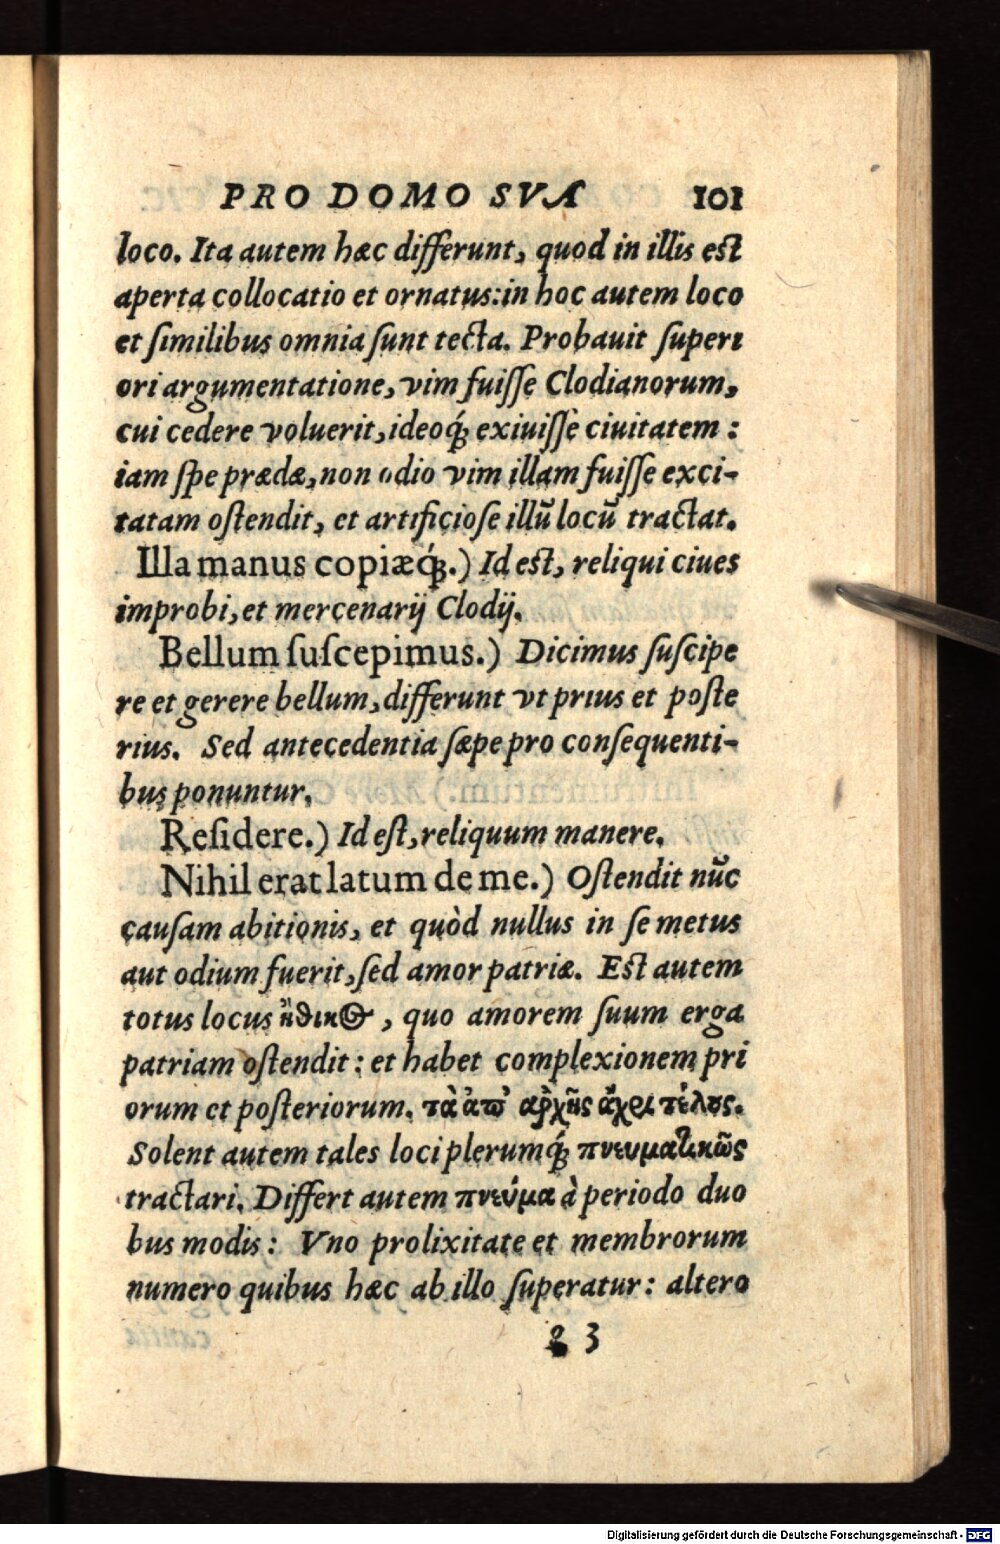 PRO DOMO SVA 101
loco. Ita autem hæc differunt, quod in illis est
aperta collocatio et ornatus: in hoc autem loco
et similibus omnia sunt tecta. Probauit superi
ori argumentatione, vim fuisse Clodianorum,
cui cedere voluerit, ideoq́; exiuisse ciuitatem:
iam spe prædæ, non odio vim illam fuisse exci-
tatam ostendit, et artificiose illũ locũ tractat.
Illa manus copiæq́;.) Id est, reliqui ciues
improbi, et mercenarij Clodij.
Bellum suscepimus.) Dicimus suscipe
re et gerere bellum, differunt vt prius et poste
rius. Sed antecedentia sæpe pro consequenti-
bus ponuntur.
Residere.) Id est, reliquum manere.
Nihil erat latum de me.) Ostendit nũc
causam abitionis, et quòd nullus in se metus
aut odium fuerit, sed amor patriæ. Est autem
totus locus ἠθικὸς, quo amorem suum erga
patriam ostendit: et habet complexionem pri
orum et posteriorum. τὰ ἀπ' αρχῆς ἄχρι τέλους.
Solent autem tales loci plerumq́; πνευματικῶς
tractari. Differt autem πνεύμα à periodo duo
bus modis: Vno prolixitate et membrorum
numero quibus hæc ab illo superatur: altero
g 3
Digitalisierung gefördert durch die Deutsche Forschungsgemeinschaft - DFG